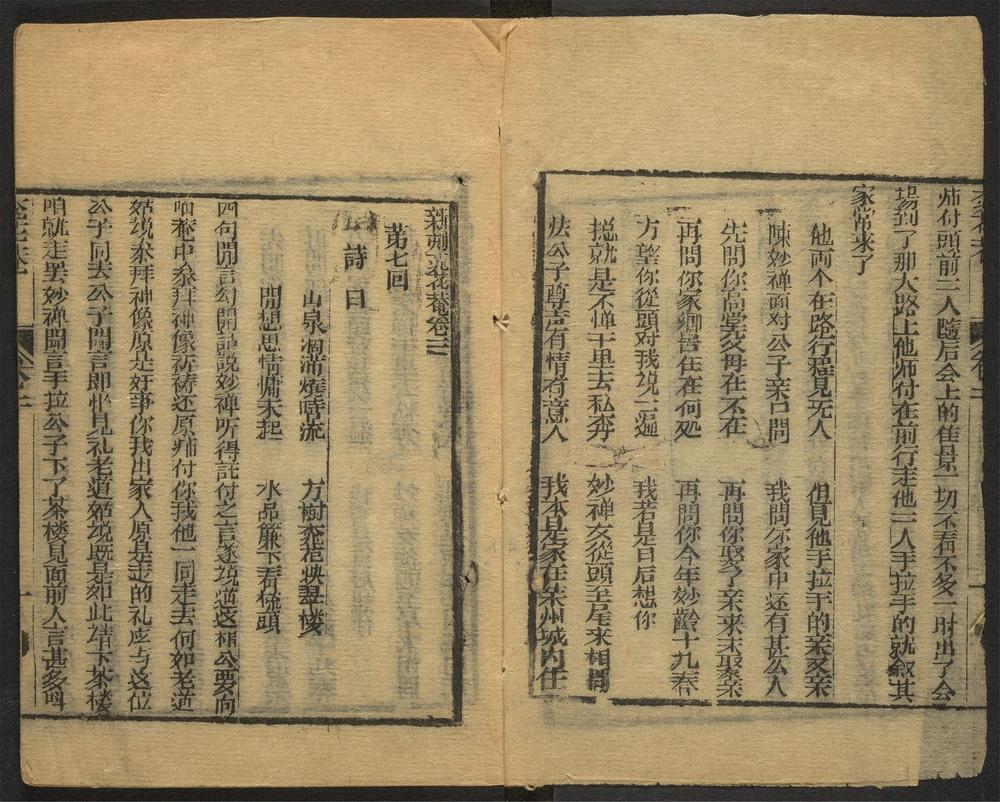 师付頭前二人隨后会上的隹景一切不看不多一时出了会
塲到了那大路上他师付在前行走他二人手拉手的就叙其
家常来了
他両个在路行程見无人　但見他手拉手的亲又亲
陳妙禅面对公子亲口問　我問你家中还有甚么人
先問你高堂父母在不在　再問你娶了亲来未娶亲
再問你家鄉皆住在何処　再問你今年妙齡十九春
方望你從頭对我説一遍　我若是日后想你
挩就是不惮千里去私奔　妙禅女從頭至尾来相稱
法公子尊声有情有意人　我本是家在朱州城內住
新刻花庵卷三
苐七回
詩曰
山泉凋满燒時流　方樹花映翠楼
閒想思情慵未起　水品簾下看梳頭
四句閒言勾開詞説妙禅听得託付之言遂説道这相公要向
咱菴中叅拜神像祈祷还原师付你我他一同走去何如老道
姑説叅拜神像原是好事你我出家人原是走的礼应与这位
公子同去公子聞言即忙見礼老道姑説既是如此請下茶楼
咱就走罢妙禅聞言手拉公子下了茶楼見面前人言甚多叫